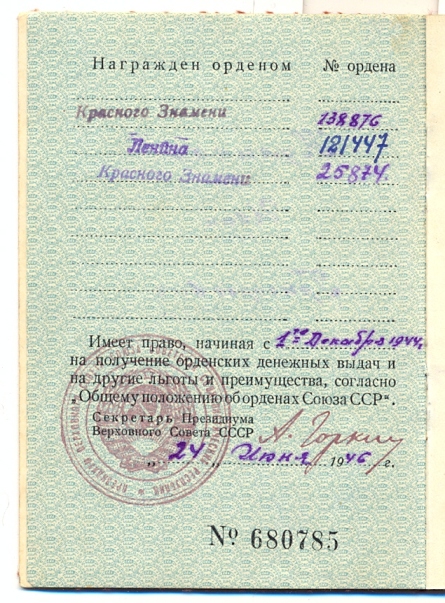 Награжден орденом № ордена
Красного Знамени 138876
Ленина 121447
Красного Знамени 25874
Имеет право, начиная с 1го Декабря 1944,
на получение орденских денежных выдач и
на другие льготы и преимущества, согласно
„Общему положению об орденах Союза ССР“.
Секретарь Президиума
Верховного Совета СССР А. Горкин
„24„ Июня 1946 г.
№ 680785